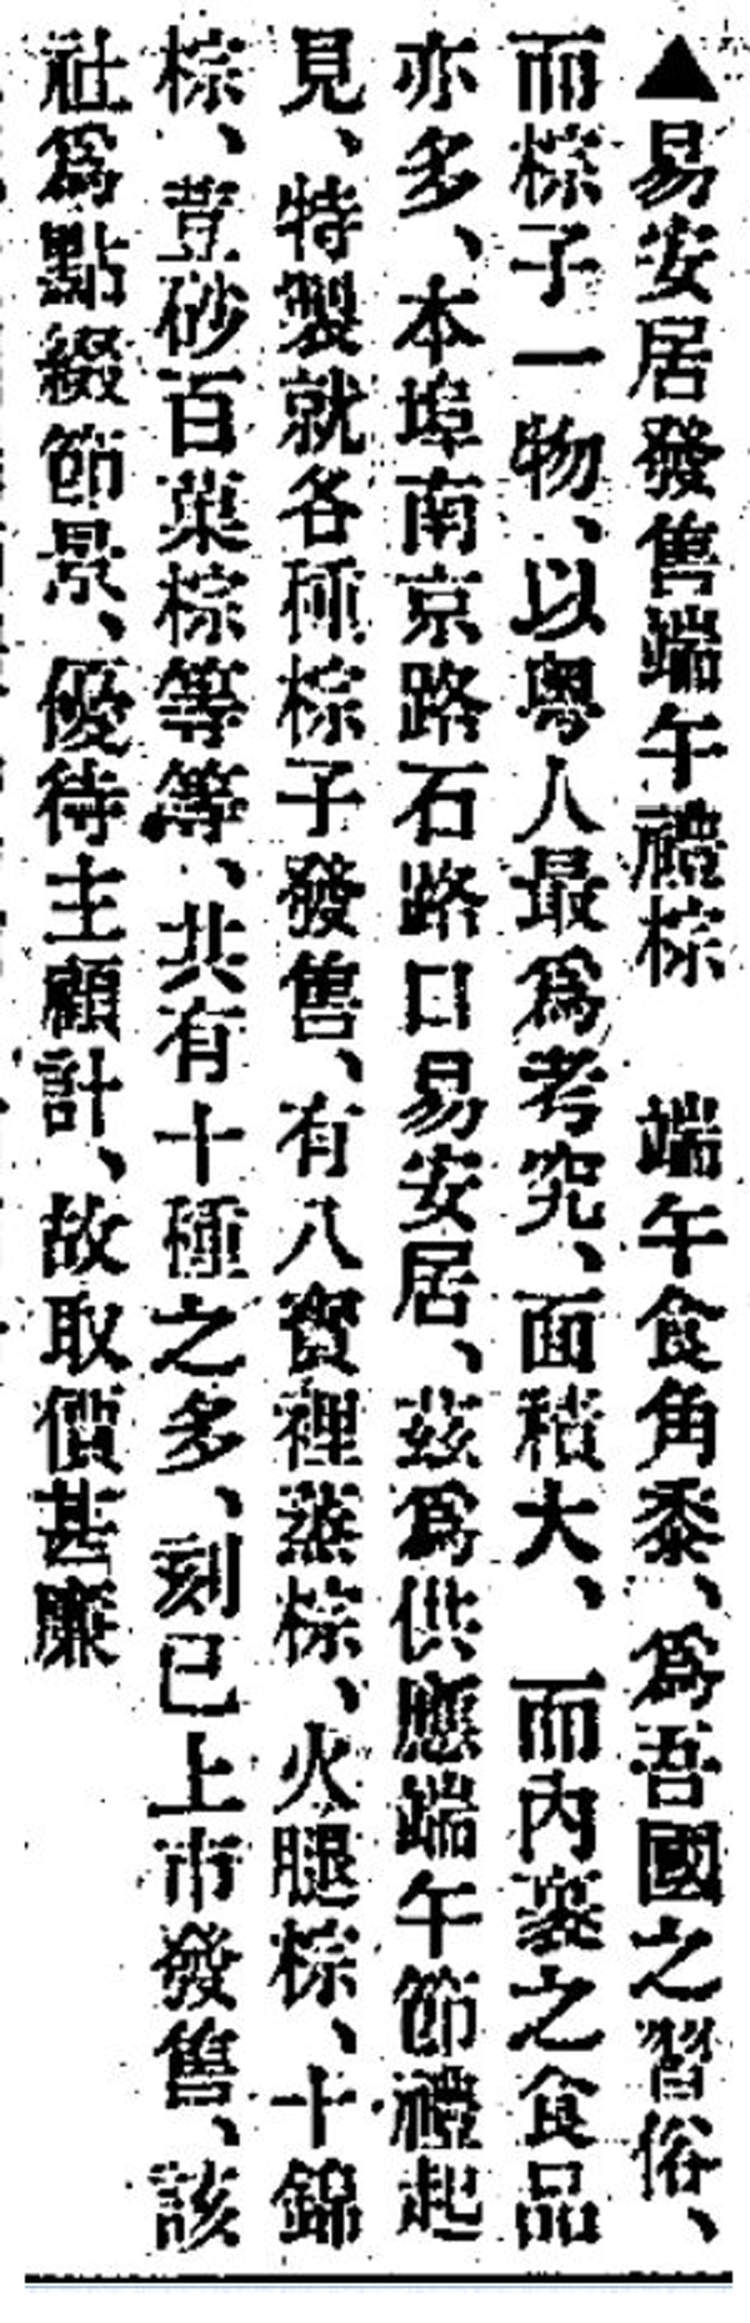 ▲易安居發售端午禮棕　端午食角黍、爲吾國之習俗、
而棕子一物、以粤人最爲考究、面積大、而內裹之食品
亦多、本埠南京路石路口易安居、茲爲供應端午節禮起
見、特製就各種棕子發售、有八寶裡蒸棕、火腿棕、十錦
棕、荳砂百菓棕等等、共有十種之多、刻已上市發售、該
社爲點綴節景、優待主顧計、故取價甚廉